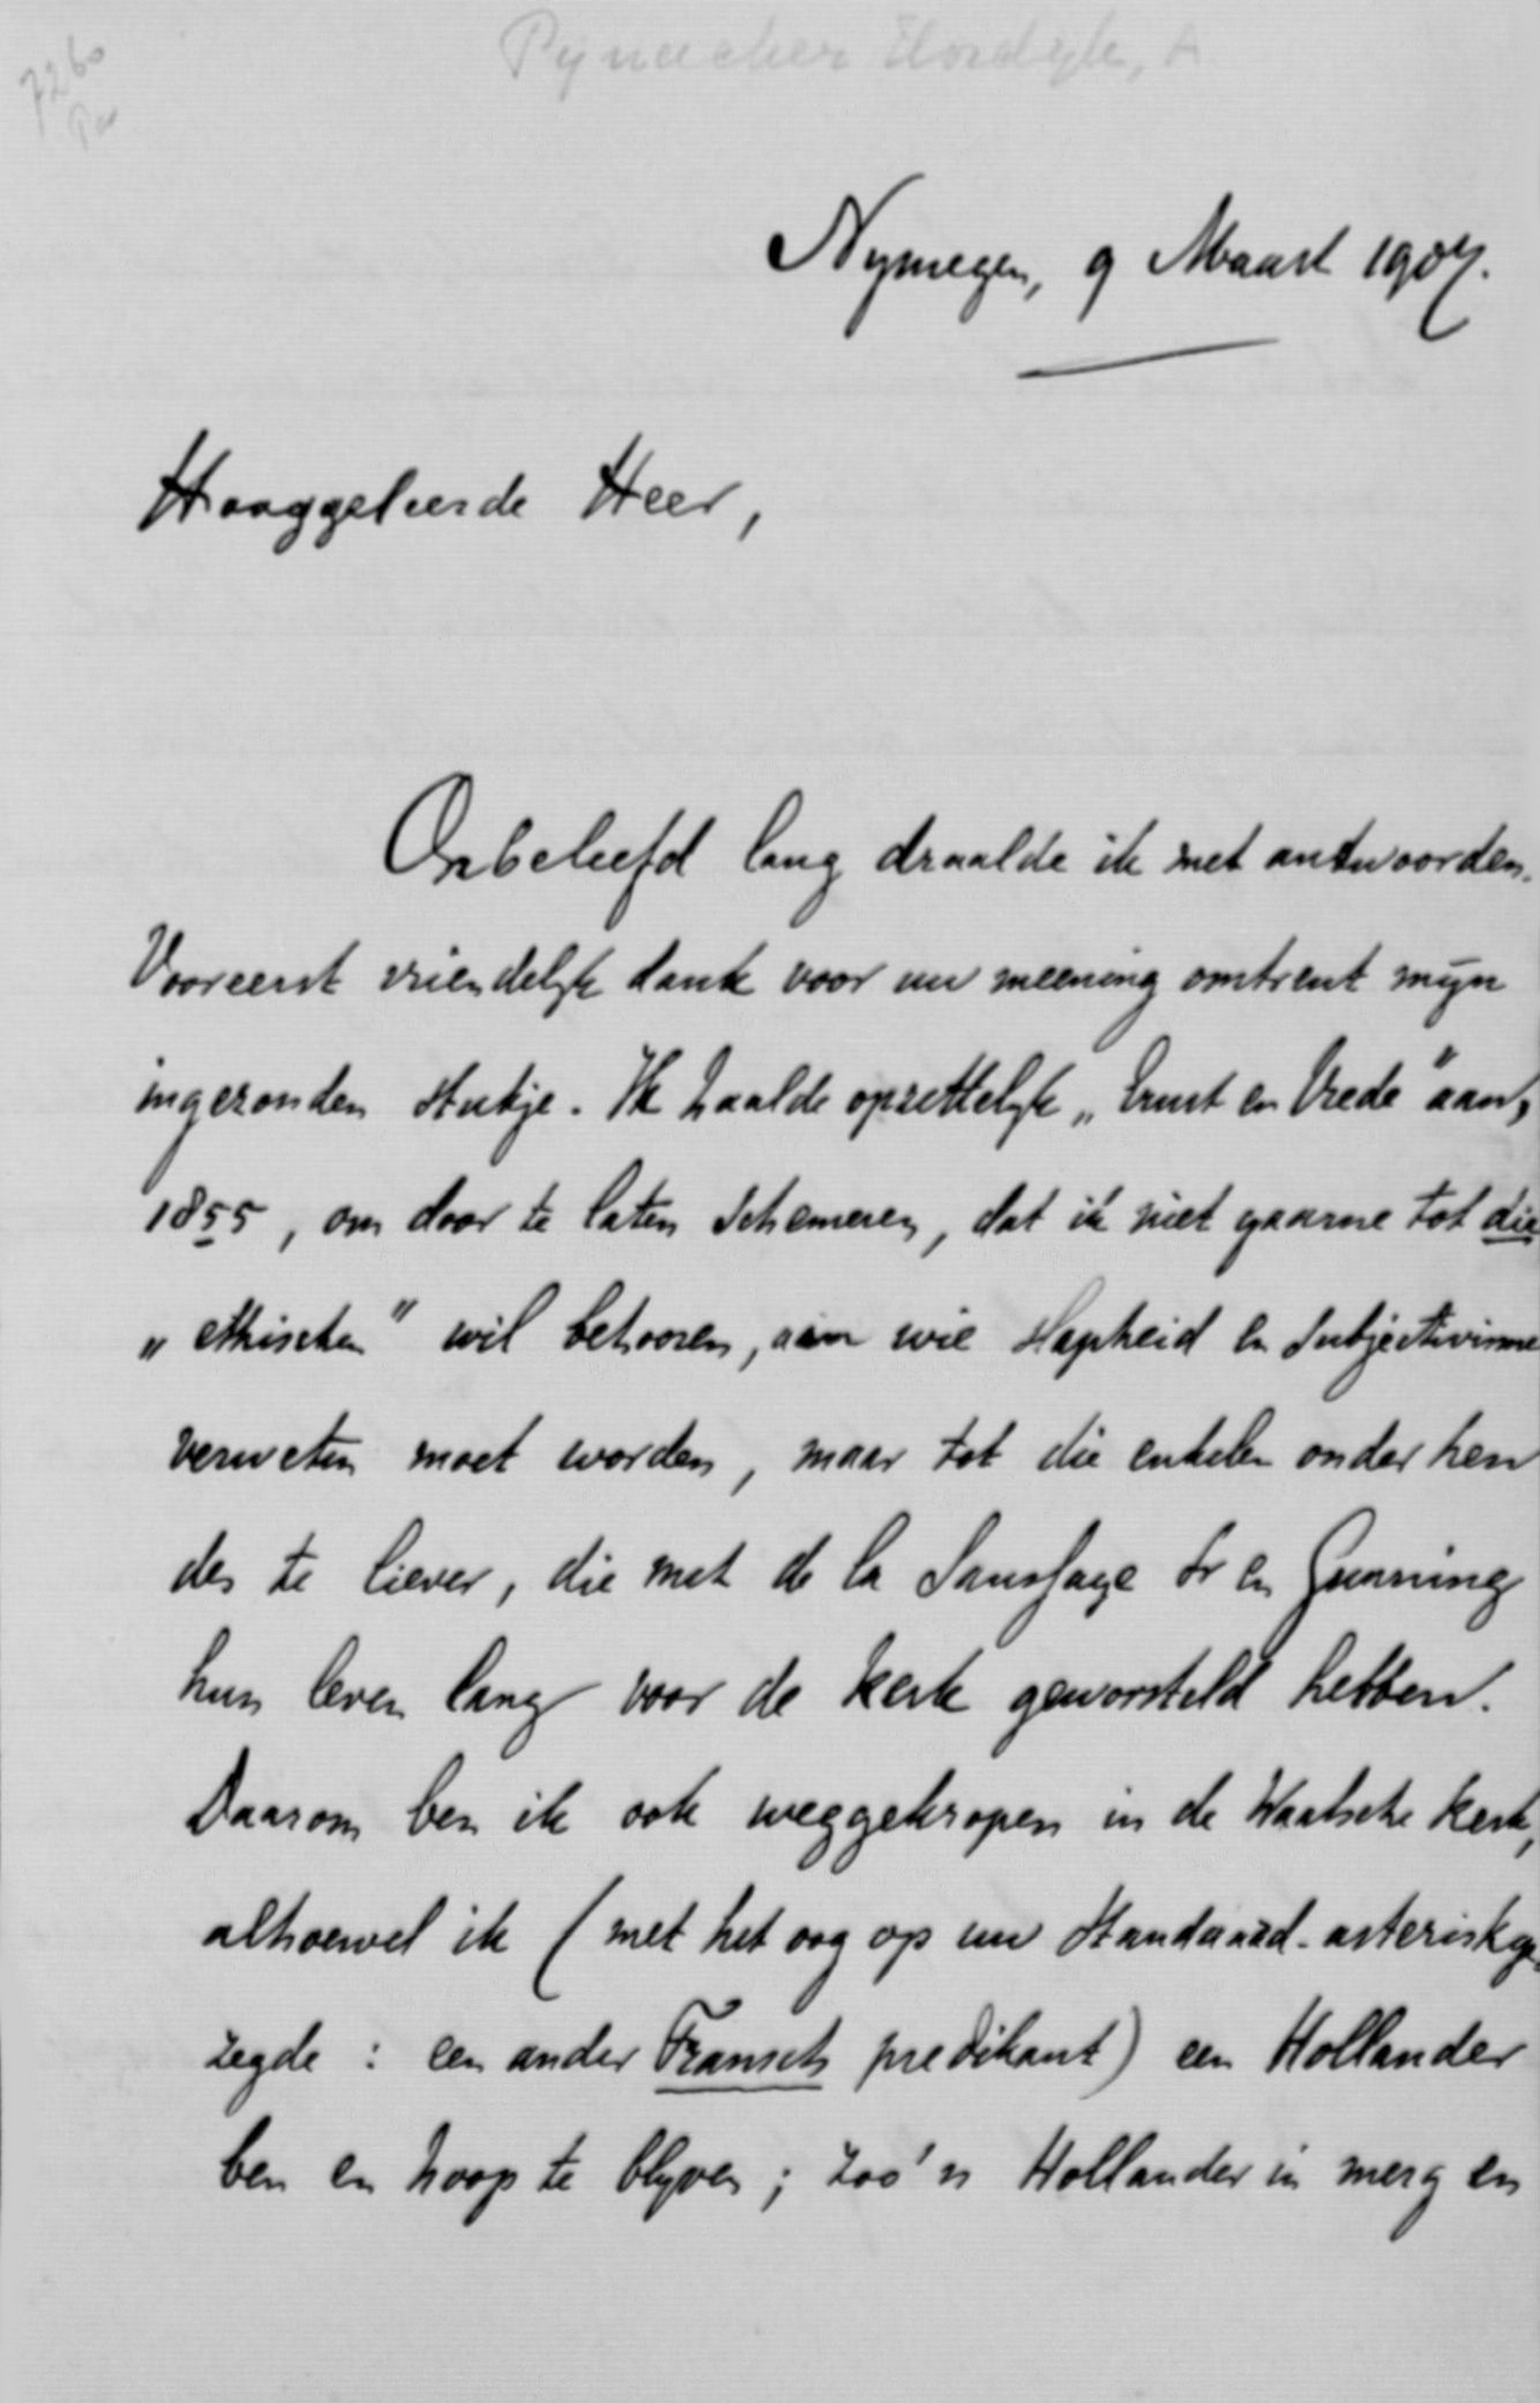 7260
Pynacker Hordyk, A
Nymegen, 9 Maart 1907.
Hooggeleerde Heer,
Onbeleefd lang draalde ik met antwoorden.
Vooreerst vriendelyk dank voor uw meening omtrent myn
ingezonden stukje. Ik haalde opzettelyk „Ernst en Vrede" aan,
1855, om door te laten schemeren, dat ik niet gaarne tot die
„ethischen" wil behooren, aan wie slapheid en subjectivisme
verweten moet worden, maar tot die enkelen onder hen
des te liever, die met de la Saussaye Sr en Gunning
hun leven lang voor de kerk geworsteld hebben.
Daarom ben ik ook weggekropen in de Waalsche kerk,
alhoewel ik (met het oog op uw Standaard-asterisk ge-
zegde: een ander Fransch predikant) een Hollander
ben en hoop te blyven; zoo'n Hollander in merg en